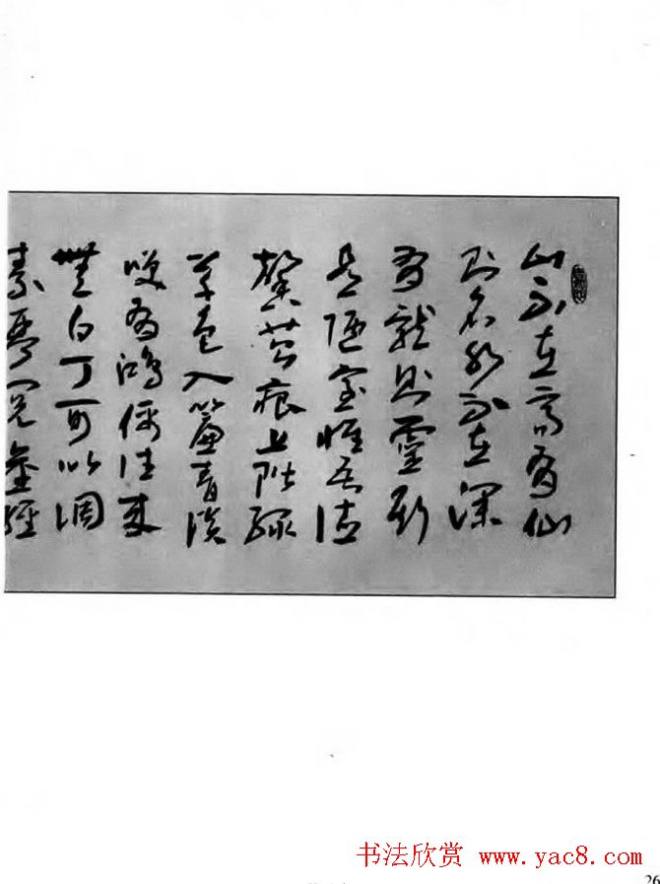 山不在高有仙
则名水不在深
有龍则靈斯
是陋室惟吾德
馨苔痕上階绿
草色入簾青談
咲有鴻儒往来
無白丁可以调
素琴阅金經
书法欣赏 www.yac8.com
26